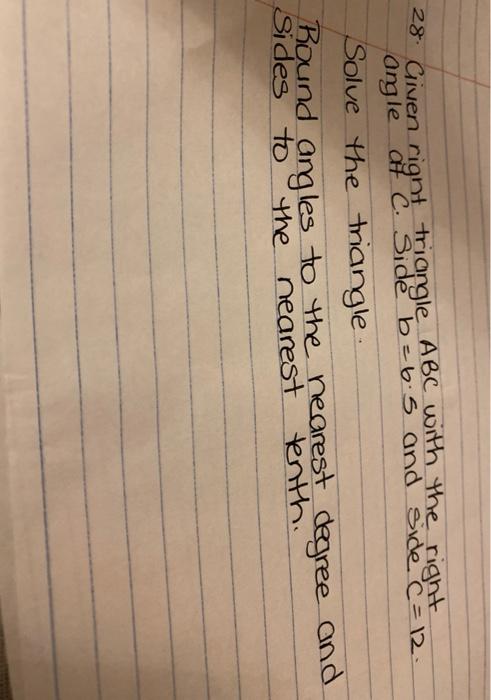 28. Given right triangle ABC with the right
angle at C. Side b=6.5 and side C=12.
Solve the triangle.
Round angles to the nearest degree and
sides to the nearest tenth.